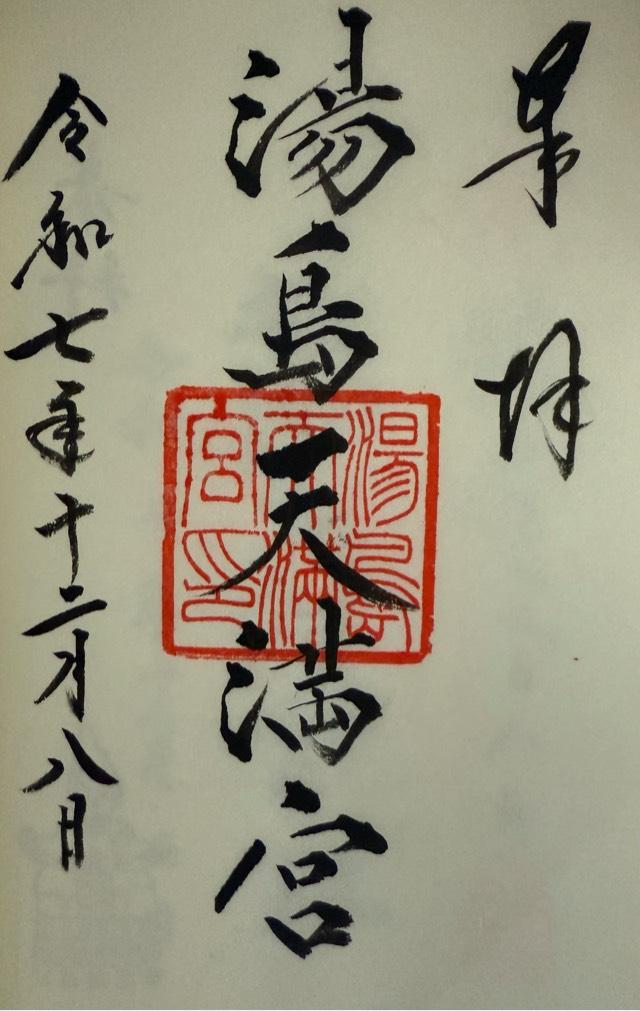 奉拝
湯島天満宮
湯島天満宮印
令和七年十二月八日